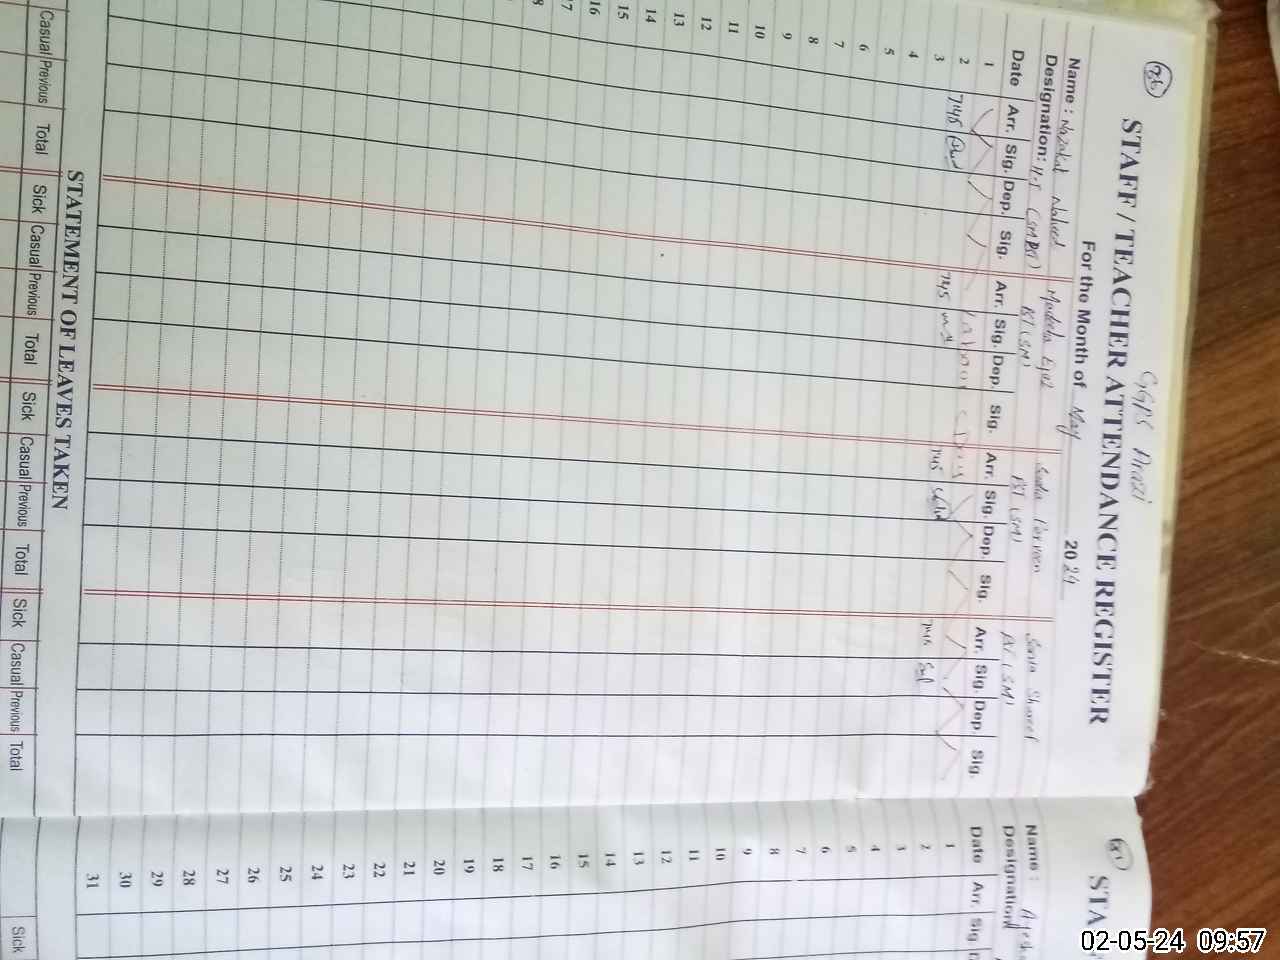 GGPS Arazi
STAFF / TEACHER ATTENDANCE REGISTER
For the Month of May 2024
Name : Nazakat Naheed
Sadia Parveen
Sonia Shareef
Designation: H.T
PST (SM)
PST (SM)
PST (SM)
Date Arr. Sig. Dep. Sig. Arr. Sig. Dep. Sig. Arr. Sig. Dep. Sig. Arr. Sig. Dep. Sig.
1
Labour Day
2 7:45 745 745
3
4
5
6
7
8
9
10
11
12
13
14
15
16
17
18
STATEMENT OF LEAVES TAKEN
Casual Previous Total Sick Casual Previous Total Sick Casual Previous Total Sick Casual Previous Total
STA
Name : Ayesha
Designation
Date Arr. Sig. D
1
2
3
4
5
6
7
8
9
10
11
12
13
14
15
16
17
18
19
20
21
22
23
24
25
26
27
28
29
30
31
Sick
02-05-24 09:57